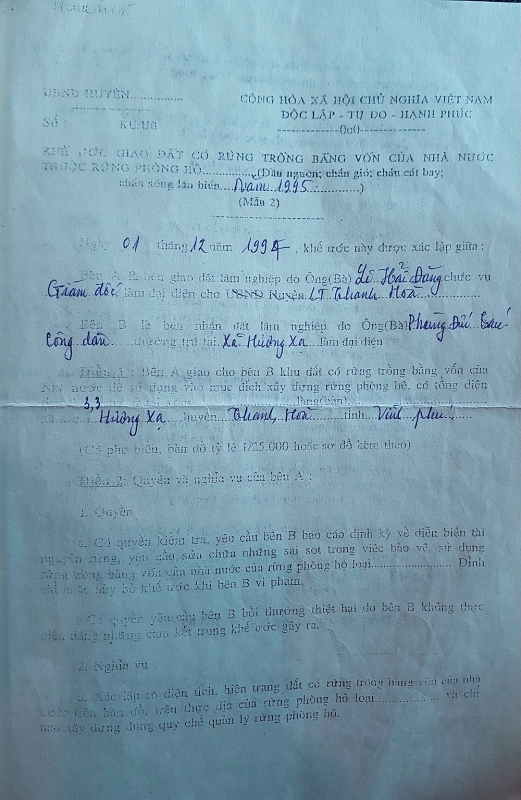 UBND HUYỆN..............
CỘNG HÒA XÃ HỘI CHỦ NGHĨA VIỆT NAM
Số KU/UB
ĐỘC LẬP - TỰ DO - HẠNH PHÚC
-------------0o0--------------
KHẾ ƯỚC GIAO ĐẤT CÓ RỪNG TRỒNG BẰNG VỐN CỦA NHÀ NƯỚC
THUỘC RỪNG PHÒNG HỘ..............(Đầu nguồn; chắn gió; chắn cát bay;
chắn sóng lấn biển...Năm 1995............)
(Mẫu 2)
Ngày 01 tháng 12 năm 1994, khế ước này được xác lập giữa :
Bên A là bên giao đất lâm nghiệp do Ông(Bà) Lê Hải Đăng chức vụ
Giám đốc làm đại diện cho UBND Huyện LT Thanh Hoà
Bên B là bên nhận đất lâm nghiệp do Ông(Bà) Phùng Đức
Công dân thường trú tại Xã Hương Xạ làm đại diện
Điều 1 : Bên A giao cho bên B khu đất có rừng trồng bằng vốn của
nhà nước để sử dụng vào mục đích xây dựng rừng phòng hộ, có tổng diện
3,3
Hương Xạ huyện Thanh Hoà tỉnh Vĩnh phú
(Có phụ biểu, bản đồ tỷ lệ 1/25.000 hoặc sơ đồ kèm theo)
Điều 2: Quyền và nghĩa vụ của bên A :
1. Quyền :
a. Có quyền kiểm tra, yêu cầu bên B báo cáo định kỳ về diễn biến tài
nguyên rừng, yêu cầu, sửa chữa những sai sót trong việc bảo vệ, sử dụng
rừng trồng bằng vốn của nhà nước của rừng phòng hộ loại................... Đình
chỉ hoặc hủy bỏ khế ước khi bên B vi phạm.
Có quyền yêu cầu bên B bồi thường thiệt hại do bên B không thực
hiện đúng những cam kết trong khế ước gây ra.
2. Nghĩa vụ
a. Xác lập rõ diện tích, hiện trạng đất có rừng trồng bằng vốn của nhà
nước trên bản đồ, trên thực địa của rừng phòng hộ loại............... và chỉ
đạo xây dựng đúng quy chế quản lý rừng phòng hộ.